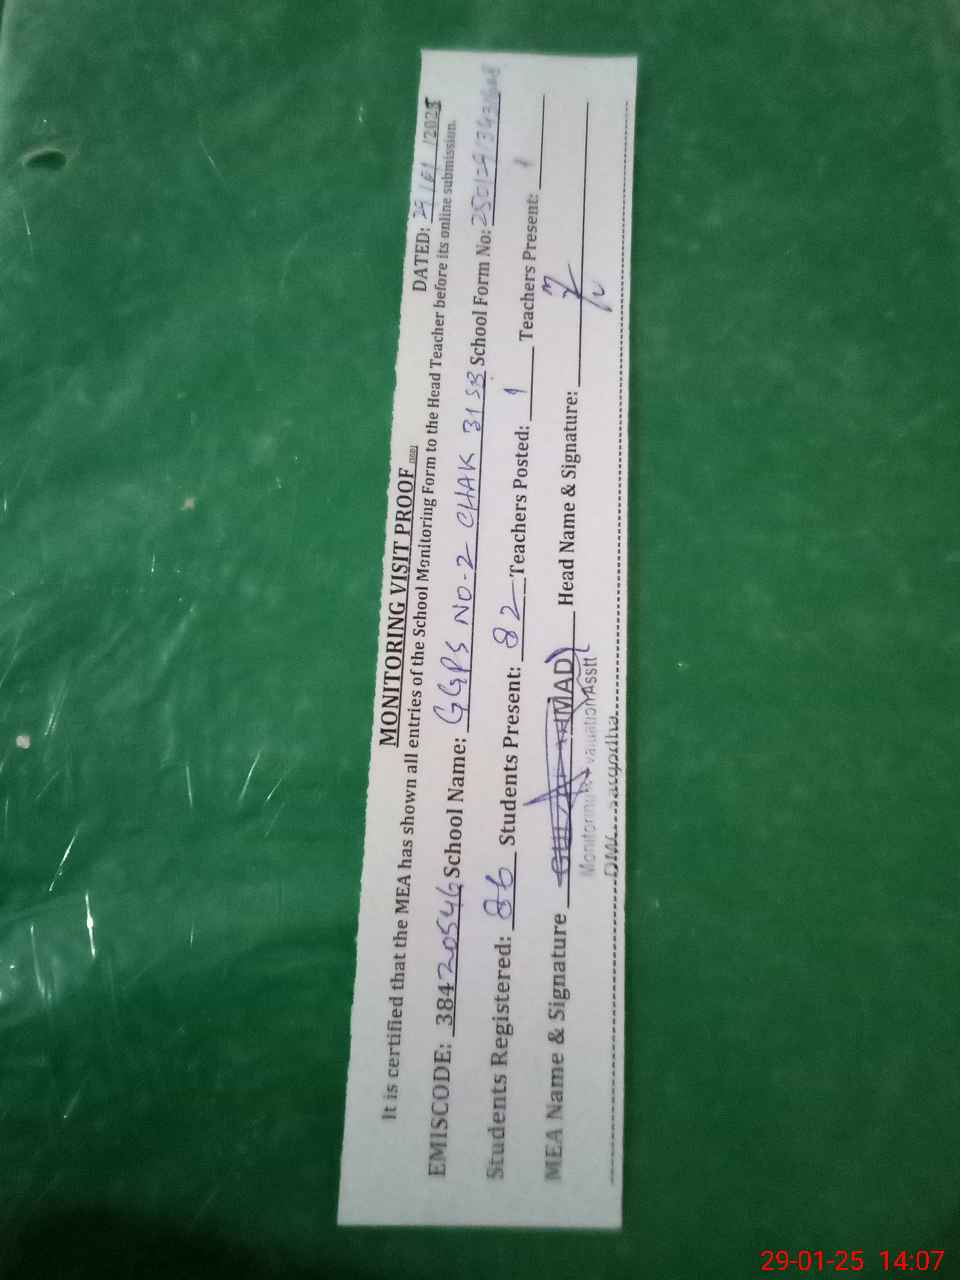 MONITORING VISIT PROOF
DATED: 29/01/2025
It is certified that the MEA has shown all entries of the School Monitoring Form to the Head Teacher before its online submission.
EMISCODE: 38420546 School Name: GGPS NO-2 CHAK 31 SB School Form No:
Students Registered: 86 Students Present: 82 Teachers Posted: 1 Teachers Present: 1
MEA Name & Signature AHMAD) Head Name & Signature:
Monitoring & Evaluation Asstt
DMO Sargodha
29-01-25 14:07